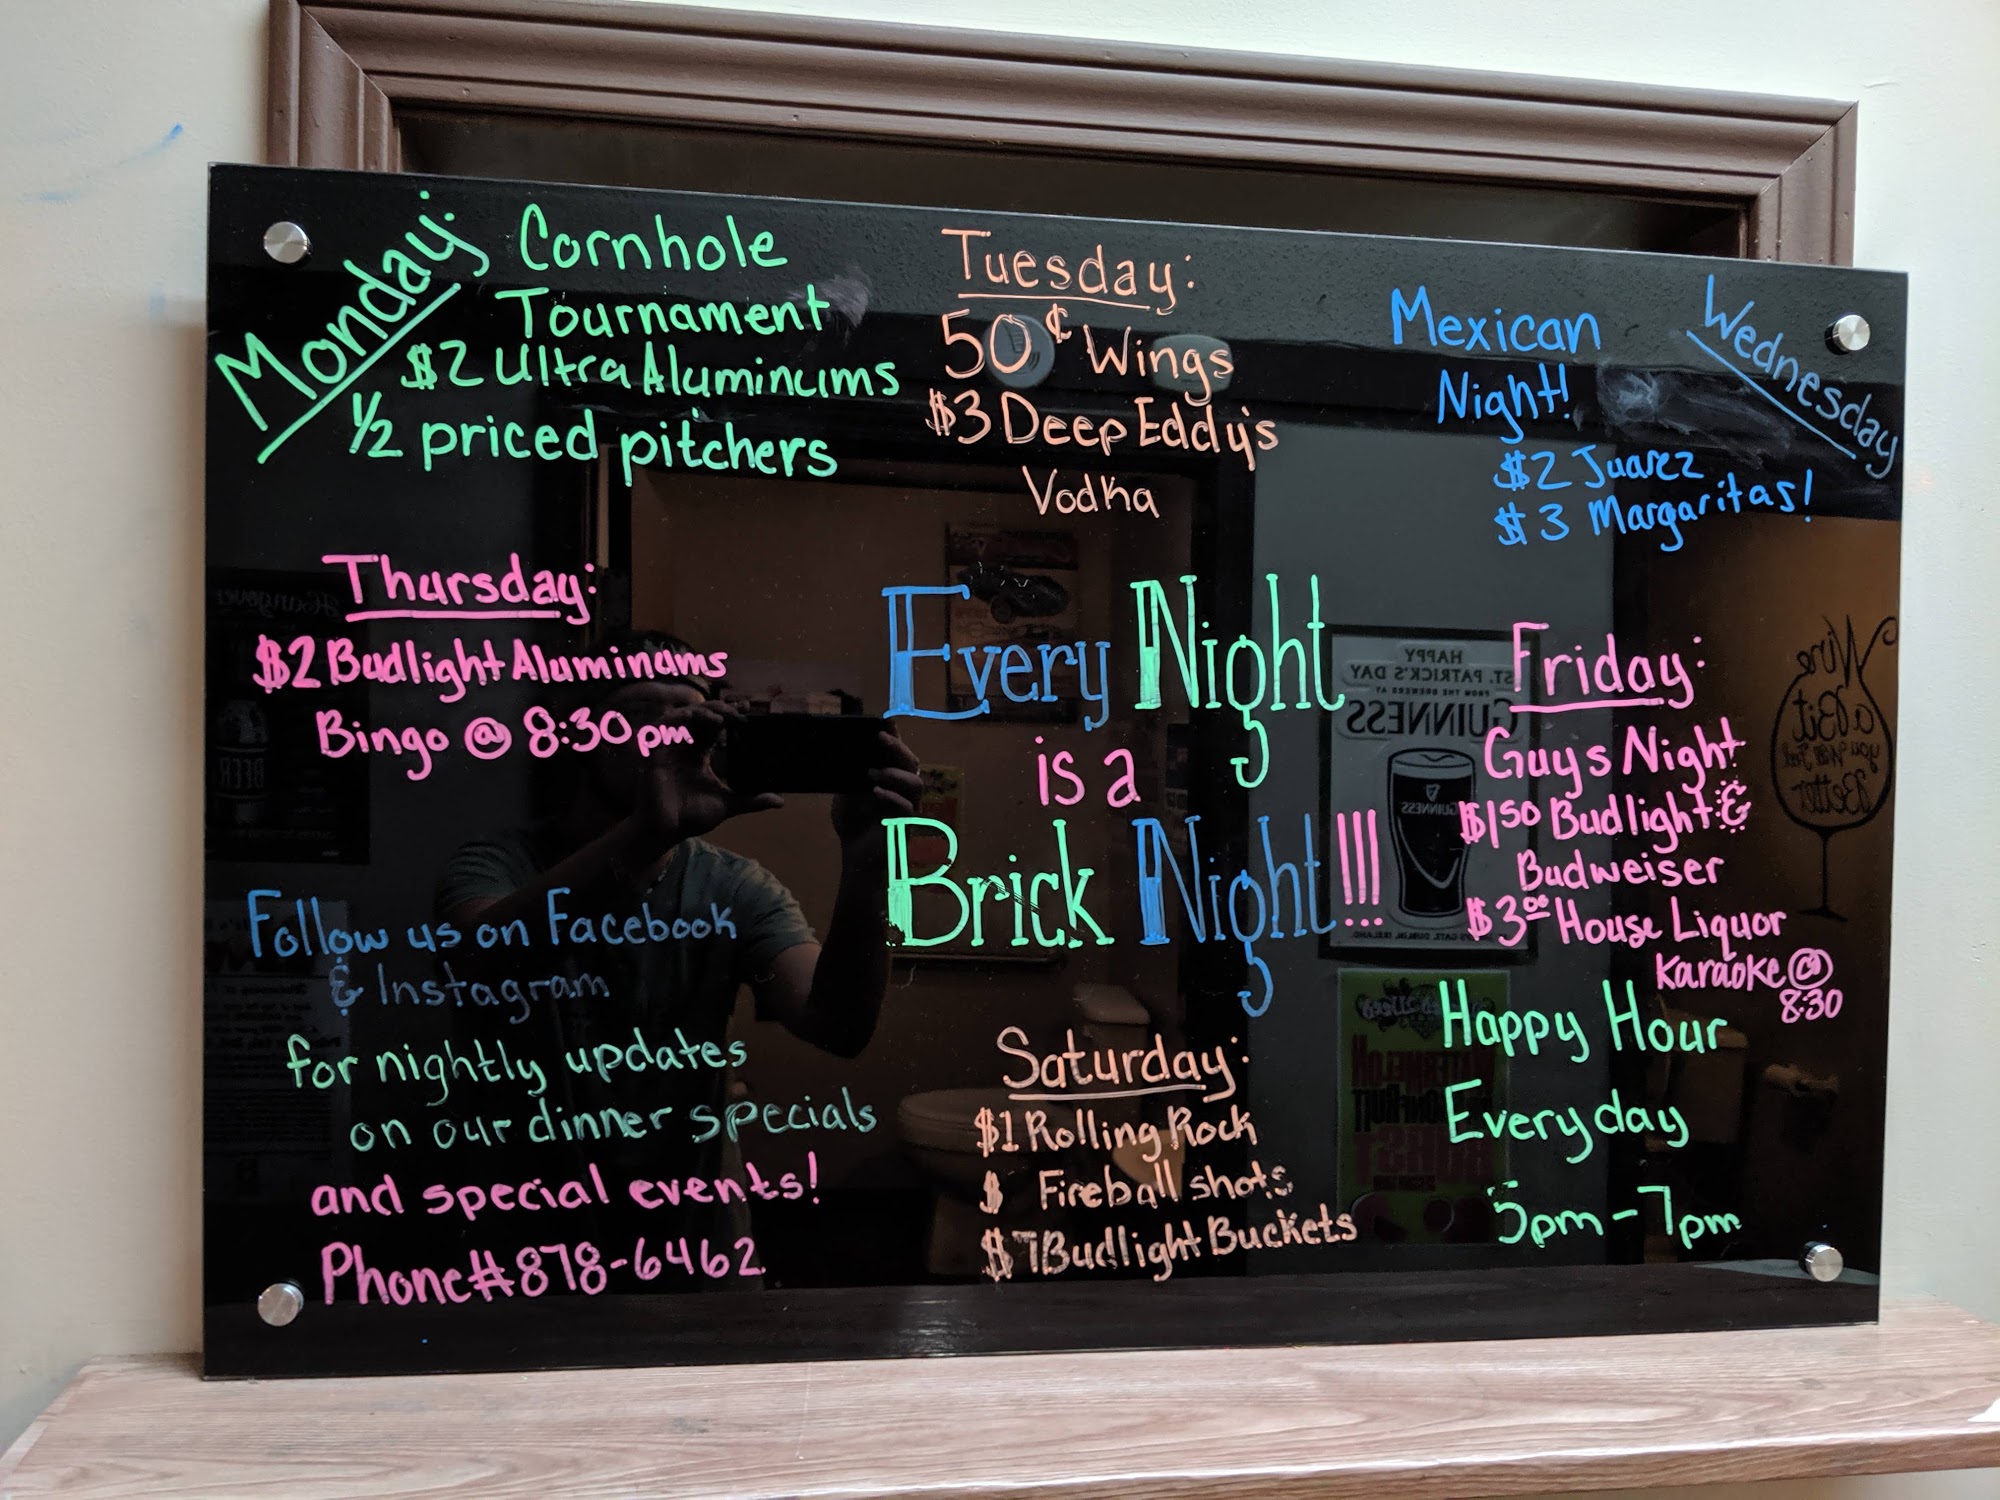 Monday:
Cornhole
Tournament
$2 Ultra Aluminums
1/2 priced pitchers
Tuesday:
50¢ Wings
$3 Deep Eddy's
Vodka
Wednesday
Mexican
Night!
$2 Juarez
$3 Margaritas!
Thursday:
$2 Budlight Aluminums
Bingo @ 8:30pm
Every Night
is a
Brick Night!!!
Friday:
Guys Night
$1 50 Budlight &
Budweiser
$3 00 House Liquor
Karaoke @
8:30
Follow us on Facebook
& Instagram
for nightly updates
on our dinner specials
and special events!
Phone# 878-6462
Saturday:
$1 Rolling Rock
$ Fireball shots
$7 Budlight Buckets
Happy Hour
Everyday
5pm - 7pm
HAPPY
ST. PATRICK'S DAY
FROM THE BREWERS AT
GUINNESS
GUINNESS
Wine
a Bit
you'll Feel
Better
Hangover
BEER